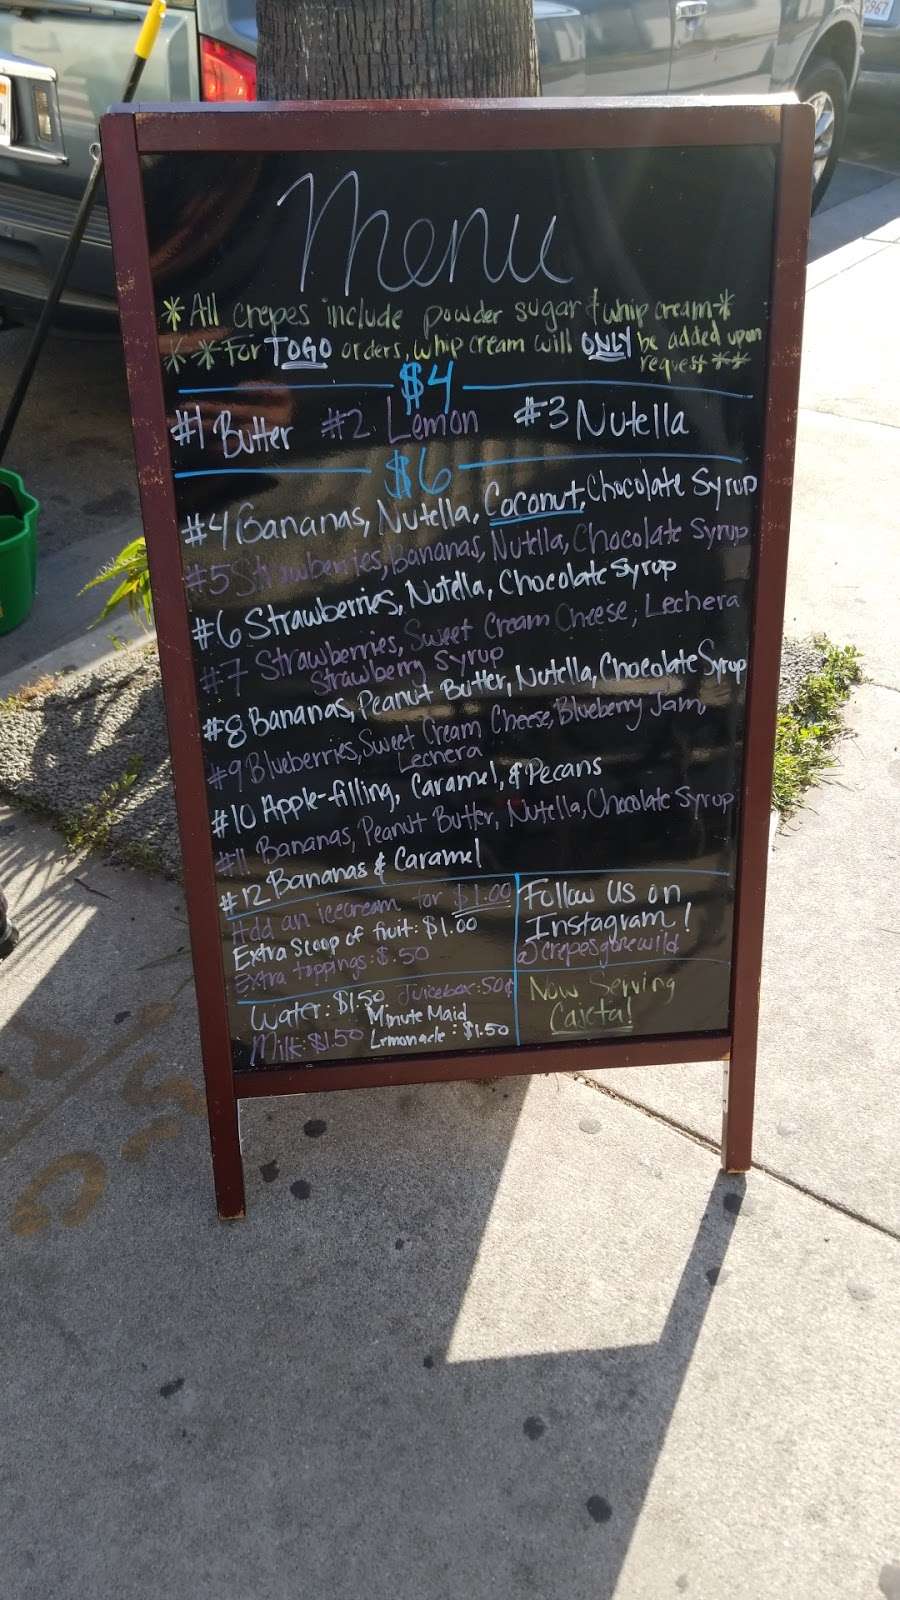 Menu
*All crepes include powder sugar & whip cream*
**For TOGO orders, whip cream will ONLY be added upon
request**
$4
#1 Butter #2 Lemon #3 Nutella
$6
#4 Bananas, Nutella, Coconut, Chocolate Syrup
#5 Strawberries, Bananas, Nutella, Chocolate Syrup
#6 Strawberries, Nutella, Chocolate Syrup
#7 Strawberries, Sweet Cream Cheese, Lechera
Strawberry Syrup
#8 Bananas, Peanut Butter, Nutella, Chocolate Syrup
#9 Blueberries, Sweet Cream Cheese, Blueberry Jam,
Lechera
#10 Apple-filling, Caramel, & Pecans
#11 Bananas, Peanut Butter, Nutella, Chocolate Syrup
#12 Bananas & Caramel
Add an icecream for $1.00
Extra Scoop of fruit: $1.00
Extra toppings: $.50
Water: $1.50 Juicebox: 50¢
Milk: $1.50 Minute Maid
Lemonade: $1.50
Follow us on
Instagram!
@crepesgonewild
Now Serving
Cajeta!